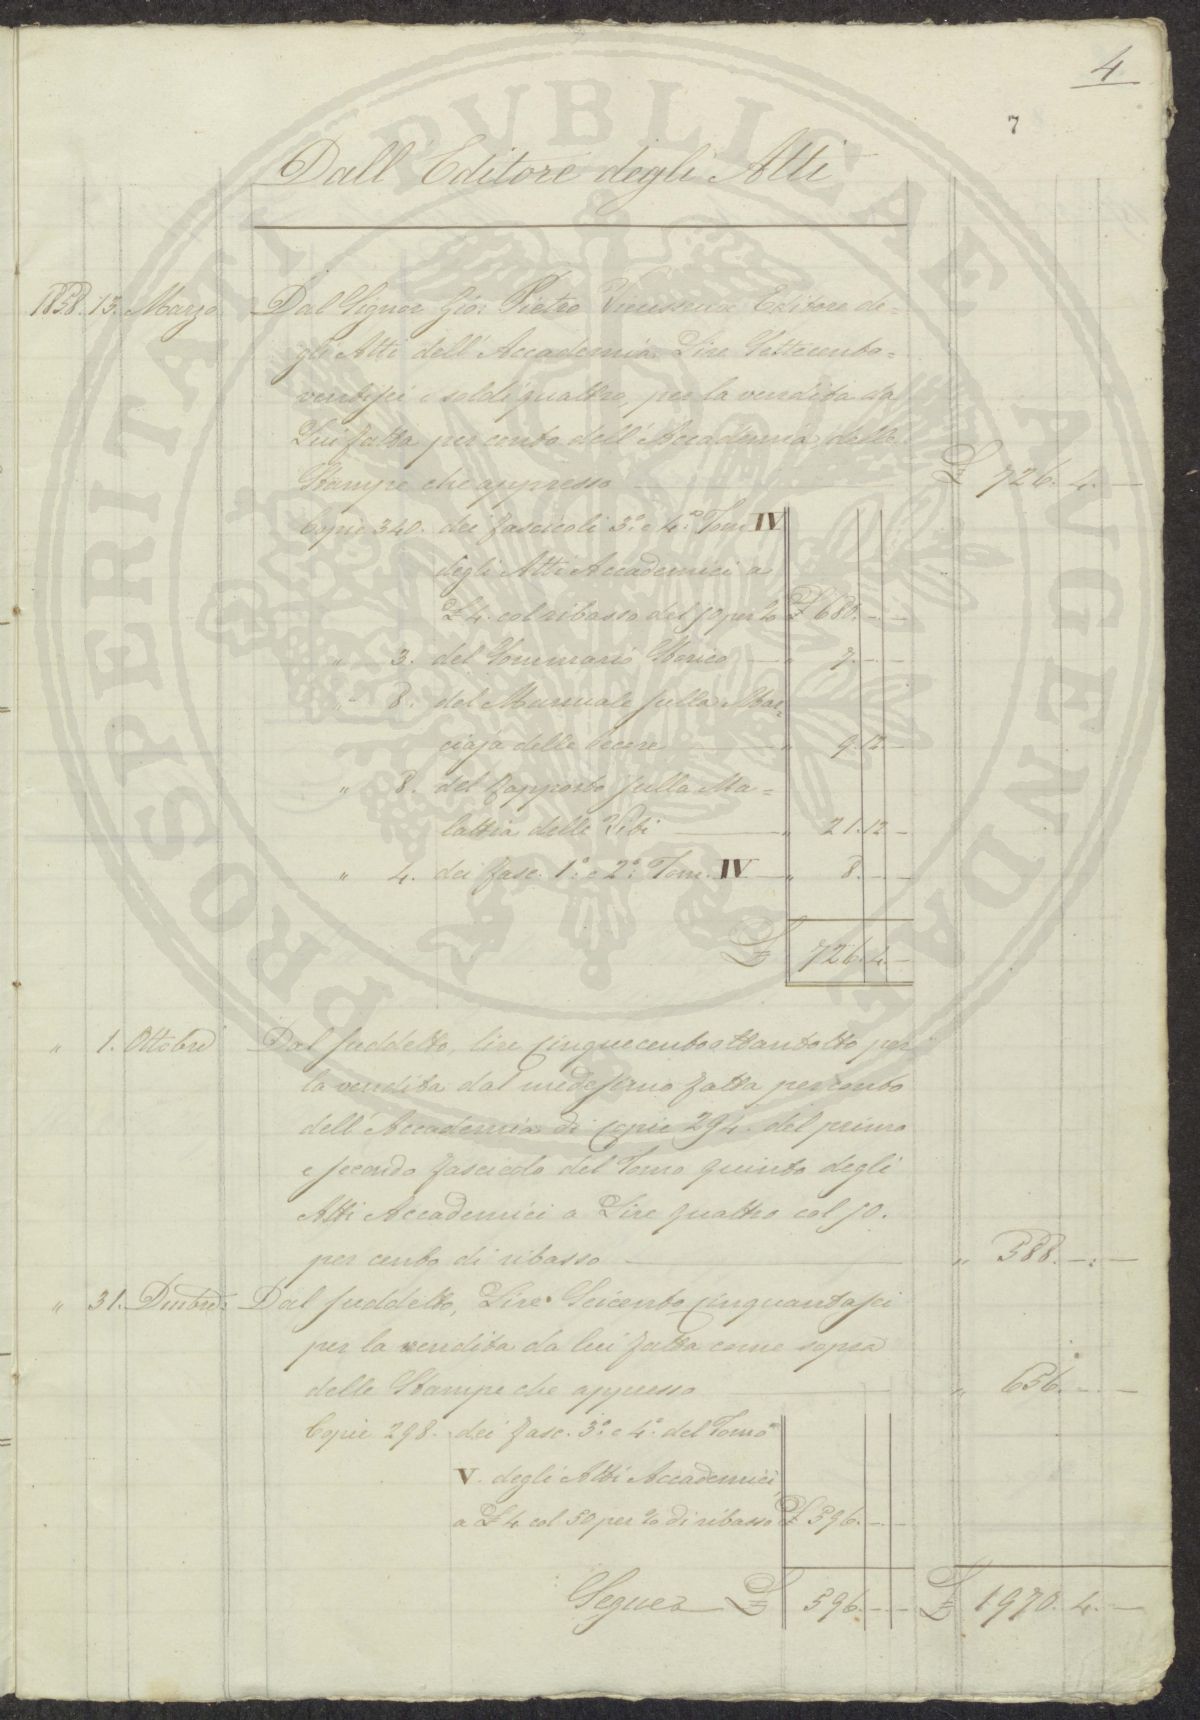 4
7
Dall Editore degli Atti
1858. 15. Marzo Dal Signor Gio: Pietro Editore de=
gli Atti dell' Accademia Lire Settecento=
ventisei e soldi quattro, per la vendita da
Lui fatta per conto dell' Accademia, delle
Stampe che appresso £ 726. 4. —
Copie 340. dei fascicoli 3.° e 4.° Tom IV
degli Atti Accademici a
£ 4. col ribasso del 50 per % £ 680. — —
" 3. del Sommario Storico — " 7. — —
" 8. del Manuale sulla
delle " 9. 12 —
" 8. del Rapporto sulla Ma=
lattia delle Viti — " 21. 12 —
" 4. dei fasc. 1.° e 2.° Tom. IV — " 8. — —
£ 726. 4. —
" 1. Ottobre Dal suddetto, lire cinquecentottantotto per
la vendita dal medesimo fatta per conto
dell' Accademia di copie 294. del primo
e secondo fascicolo del Tomo quinto degli
Atti Accademici a Lire quattro col 50.
per cento di ribasso — " 588. —. —
" 31. Dmbre: Dal suddetto, Lire Seicento cinquantasei
per la vendita da lui fatta come sopra
delle Stampe che appresso — " 656. — —
Copie 298. dei fasc. 3.° e 4.° del Tomo
V. degli Atti Accademici,
a £ 4 col 50 per % di ribasso £ 596. — —
Segue £ 596. — — £ 1970. 4. —
PROSPERITATI PVBLICAE AVGENDAE